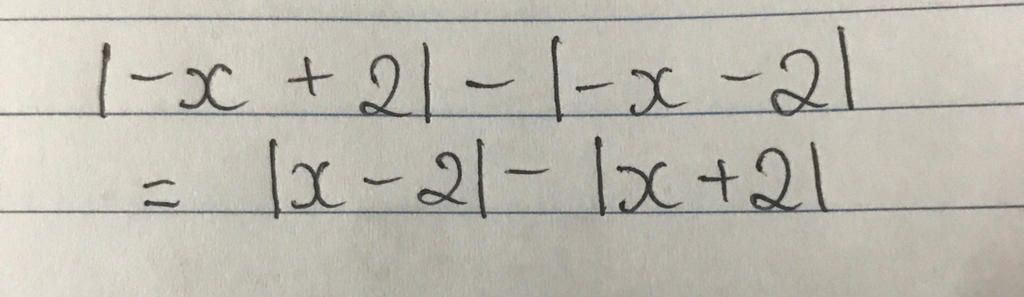 |-x + 2| - |-x - 2|
= |x - 2| - |x + 2|